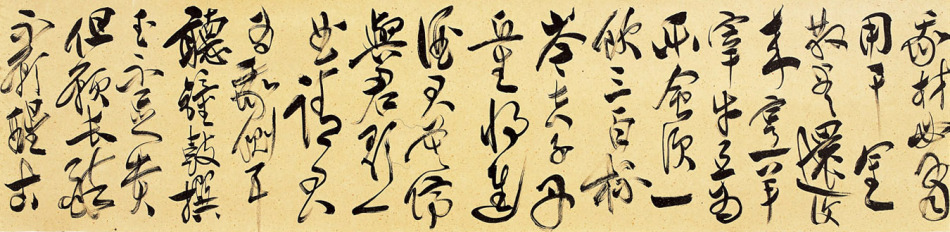 我材必有
用千金
散盡還復
來烹羊
宰牛且為
樂會須一
飲三百杯
岑夫子丹
丘生將進
酒君莫停
與君歌一
曲請君
為我側耳
聽鐘鼓撰
玉不足貴
但願長醉
不願醒古